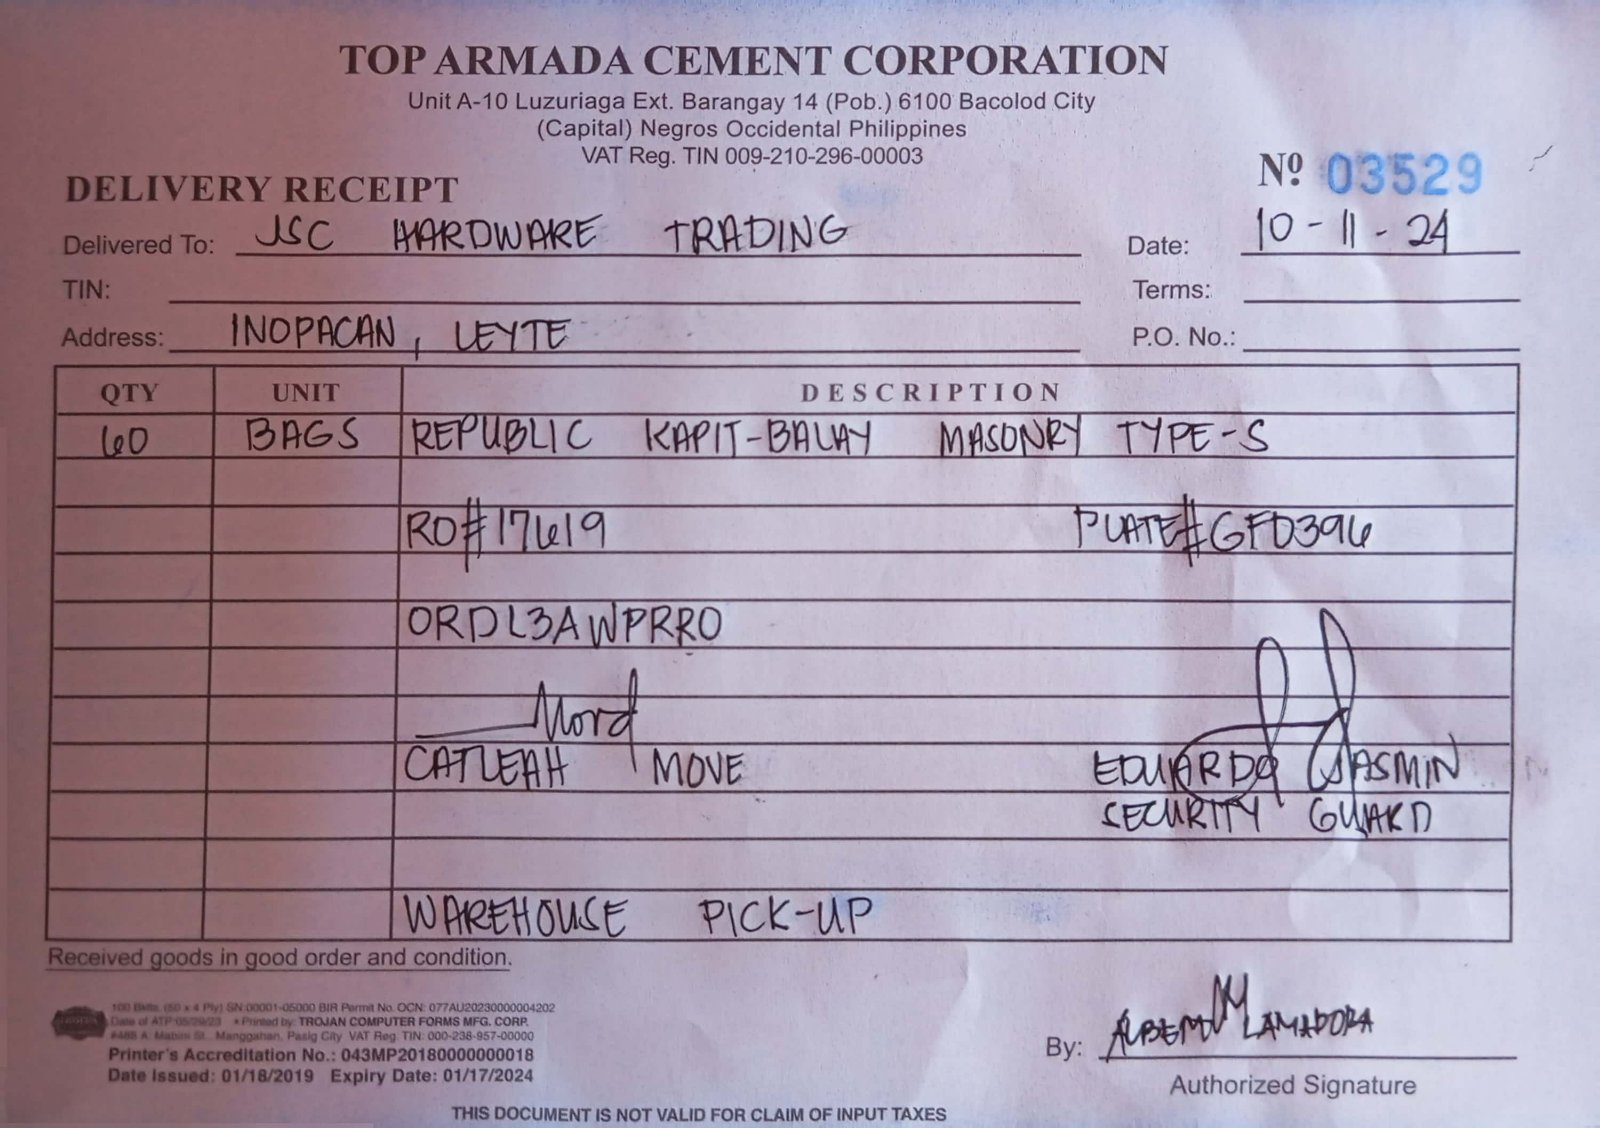 TOP ARMADA CEMENT CORPORATION
Unit A-10 Luzuriaga Ext. Barangay 14 (Pob.) 6100 Bacolod City
(Capital) Negros Occidental Philippines
VAT Reg. TIN 009-210-296-00003
Nº 03529
DELIVERY RECEIPT
Delivered To: JSC HARDWARE TRADING Date: 10-11-24
TIN: Terms:
Address: INOPACAN, LEYTE P.O. No.:
QTY UNIT DESCRIPTION
60 BAGS REPUBLIC KAPIT-BALAY MASONRY TYPE-S
RO#17619 PLATE#GFD396
ORDL3AWPRRO
CATLEAH MOVE EDUARDO JASMIN
SECURITY GUARD
WAREHOUSE PICK-UP
Received goods in good order and condition.
100 Bklts. (50 x 4 Ply) SN:00001-05000 BIR Permit No. OCN: 077AU20230000004202
Date of ATP:05/29/23 • Printed by: TROJAN COMPUTER FORMS MFG. CORP.
#488 A. Mabini St., Manggahan, Pasig City VAT Reg. TIN: 000-238-957-00000
Printer's Accreditation No.: 043MP20180000000018
Date Issued: 01/18/2019 Expiry Date: 01/17/2024
By: ALBERTO LAMADORA
Authorized Signature
THIS DOCUMENT IS NOT VALID FOR CLAIM OF INPUT TAXES